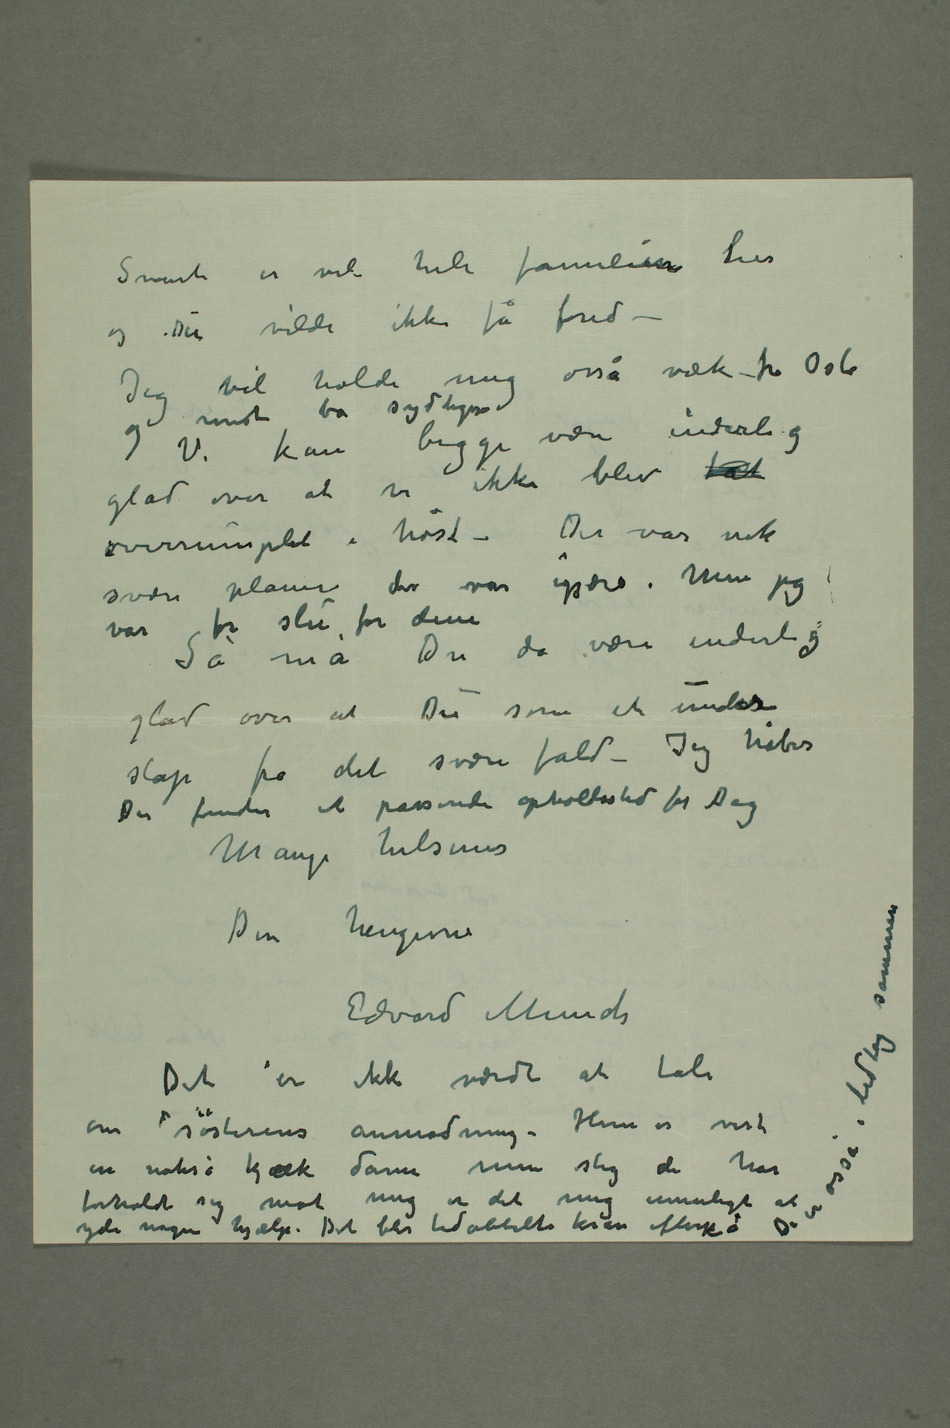 Snart er vel hele familien her
og Du vilde ikke få fred –
Jeg vil holde mig også væk fra Oslo
og mest bo sydligere
Vi kan begge være inderlig
glad over at vi ikke blev tat
overrumplet i høst – Der var nok
svære planer der var igjære. Men jeg
var for slu for dem
Så må Du da være inderlig
glad over at Du som et under
slap fra det svære fald – Jeg håber
Du finder et passende opholdssted for Dag
Mange hilsener
Din hengivne
Edvard Munch
Det er ikke værdt at tale
om søsterens anmodning – Hun er vist
en nokså kjæk dame men slig de har
forholdt sig mot mig er det mig umuligt at
yde nogen hjælp. Det blir tidobbelte krav efterpå
De er også i ledtog sammen